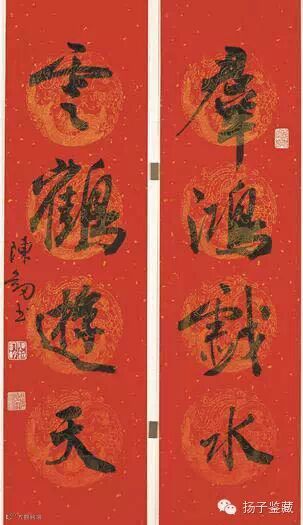 羣鴻戲水
雲鶴遊天
陳
扬子鉴藏